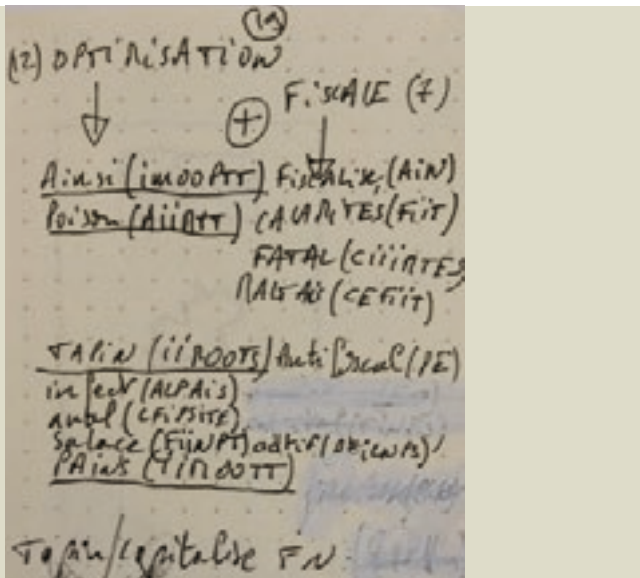 19
(12) OPTIMISATION
+ FiSCALE (7)
Ainsi (imOOPTT) Fiscalise, (AiN)
Poison (AiiMTT) CALAMITES (FiiT)
FATAL (CiiiMTES
MALTAiS (CEFiiT)
TAPiN (iiMOOTS) Antifiscal (PE)
infect (ALPAiS)
anal (CFiPSiTE)
Salace (FijNPT)
PAiNS (TiMOOTT)
Tapin/capitalise FN